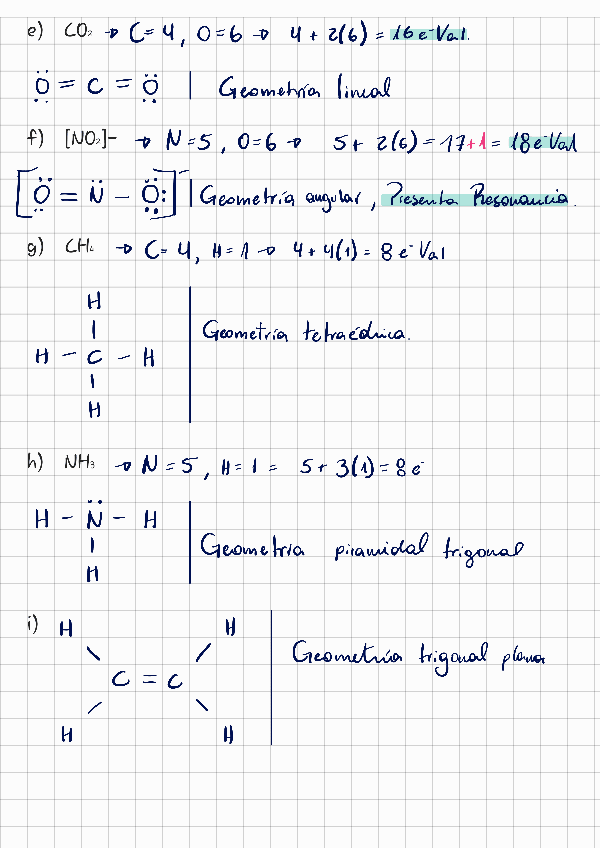 e) CO₂ → C=4, O=6 → 4 + 2(6) = 16 e⁻Val.
Ö = C = Ö | Geometría lineal
f) [NO₂]- → N=5, O=6 → 5+ 2(6) = 17+1 = 18e⁻Val
[Ö = N̈ - Ö:]⁻ | Geometría angular, Presenta Resonancia.
g) CH₄ → C=4, H=1 → 4+4(1) = 8 e⁻Val
H
|
H - C - H
|
H
Geometría tetraédrica.
h) NH₃ → N=5, H=1 = 5+3(1) = 8e⁻
H - N̈ - H
|
H
Geometría piramidal trigonal
i) H H
\ /
C = C
/ \
H H
Geometría trigonal plana